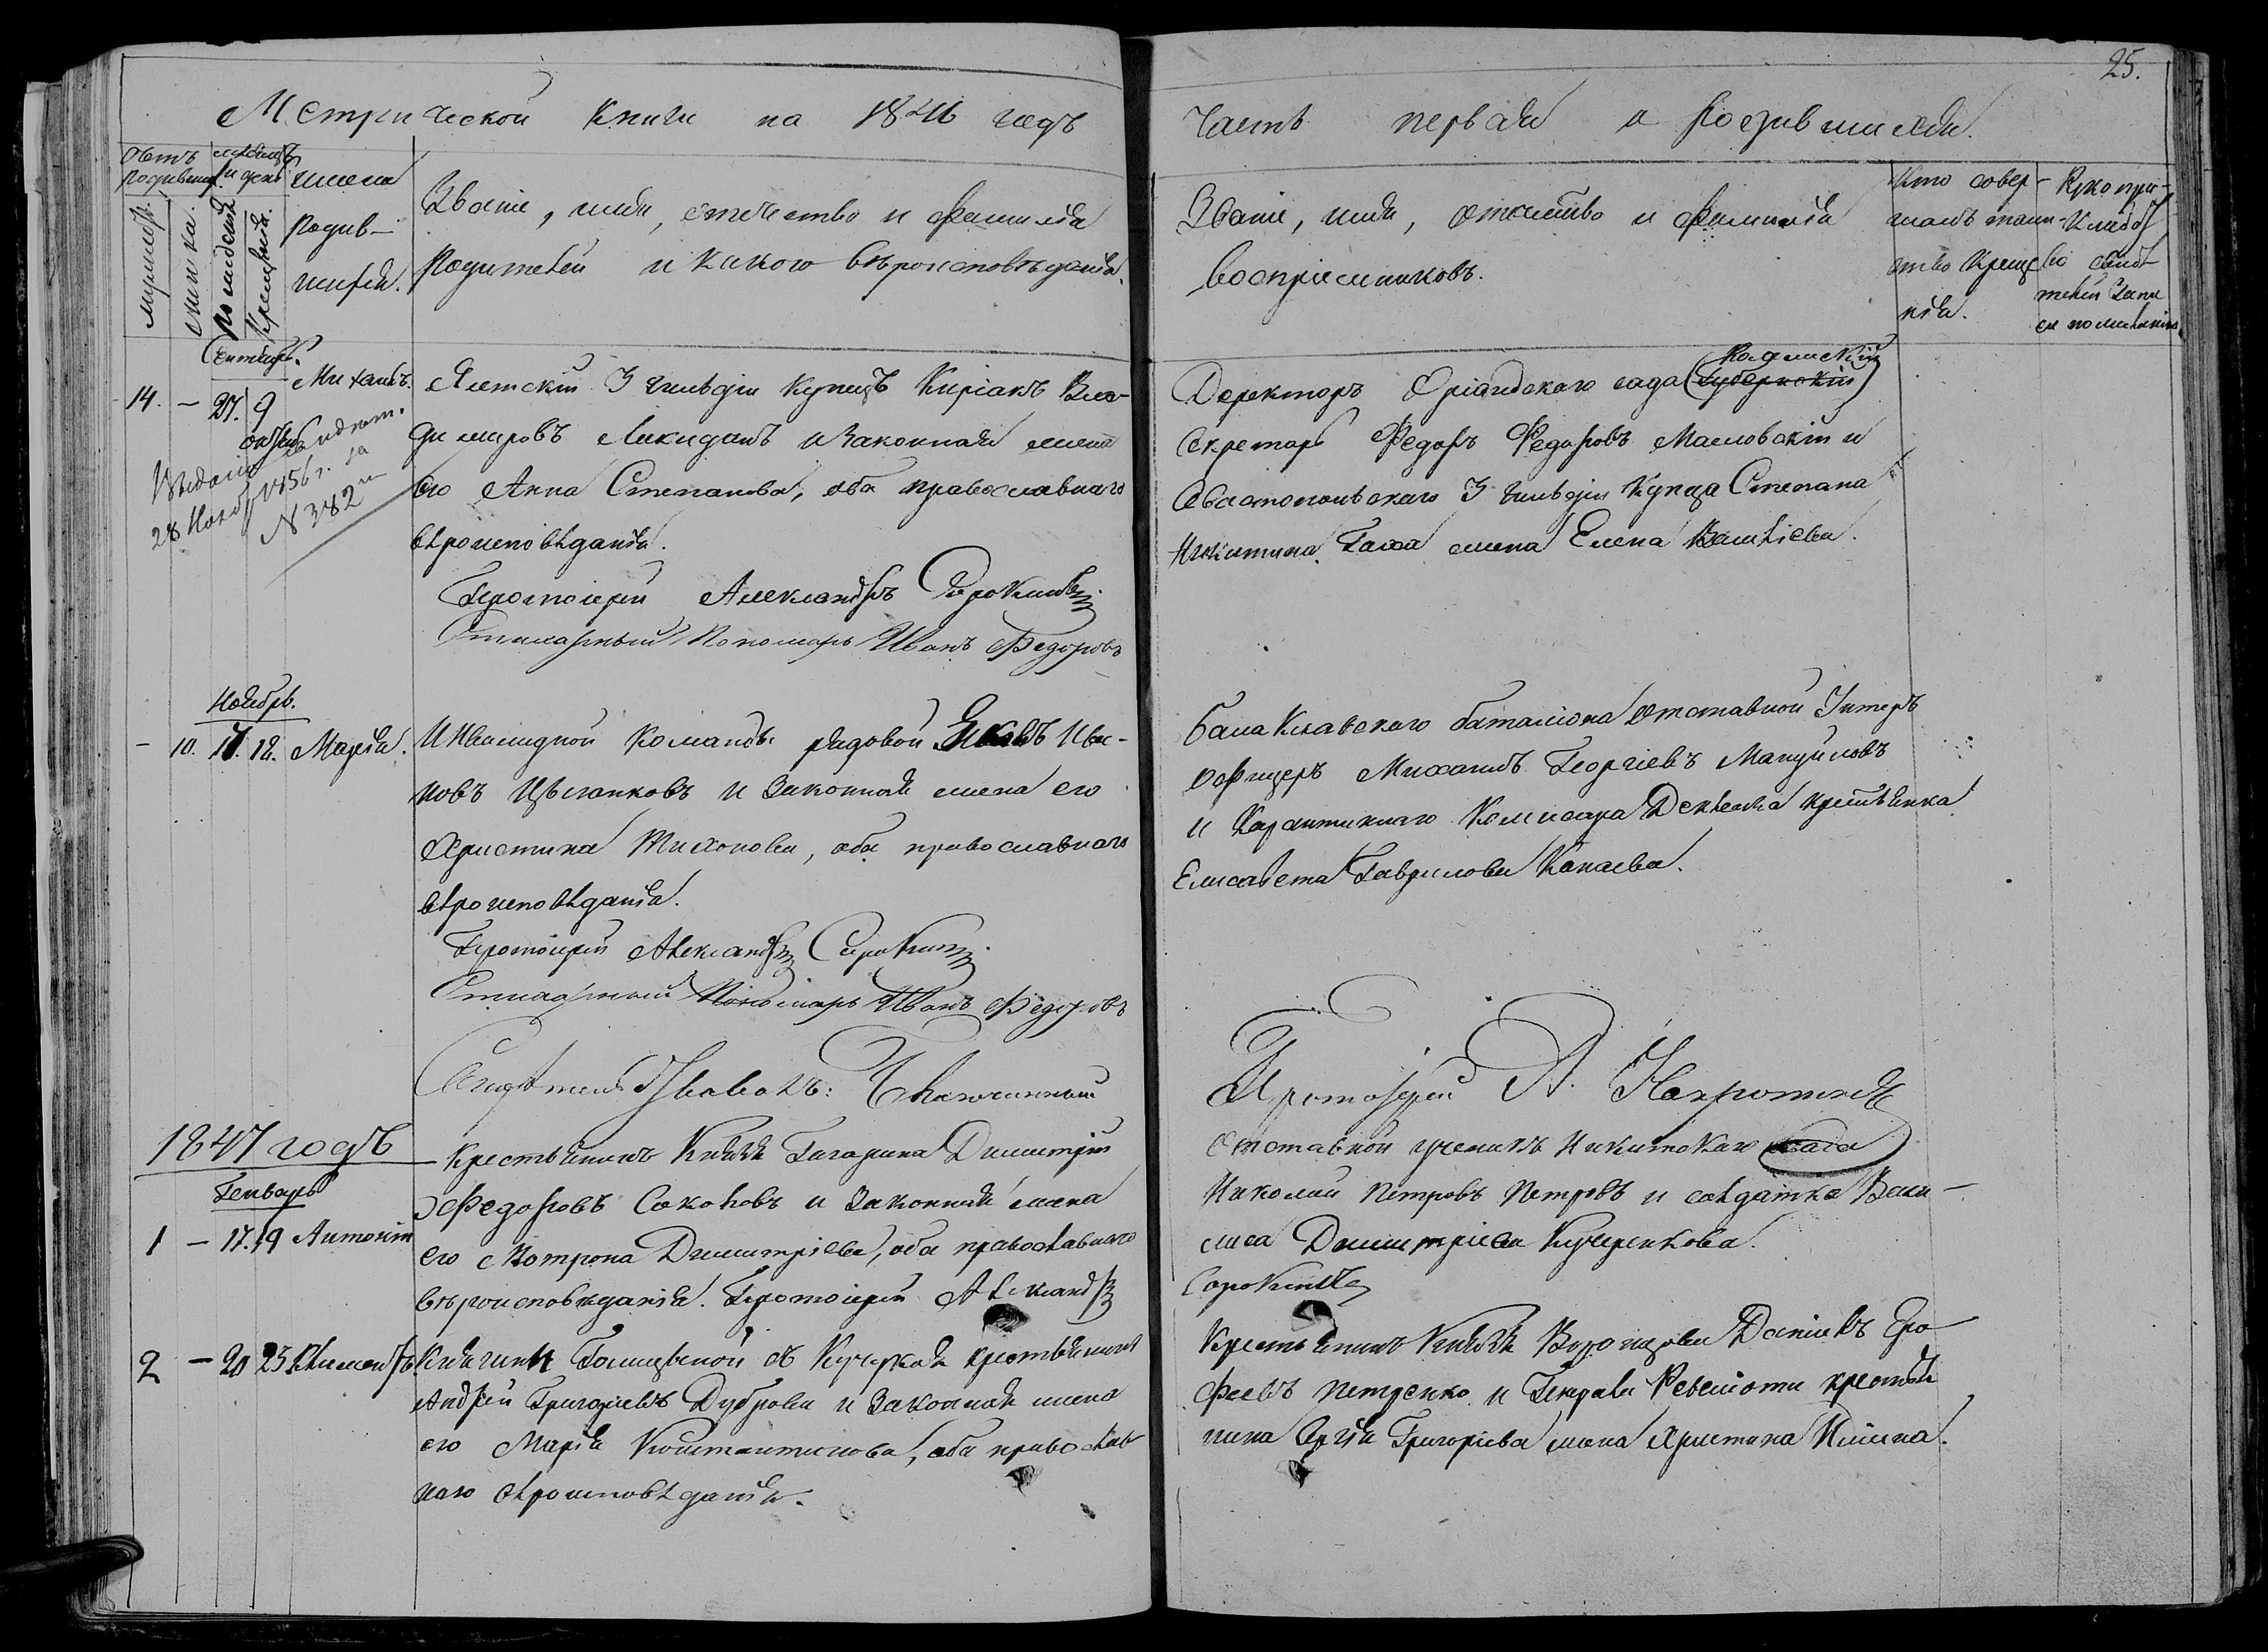 25.
Метрической книги на 1846 годъ
Часть первая о родившихся.
Счетъ родившихся
мужеска.
женска.
месяцъ и день
рожденія
крещенія.
имена
родив-
шихся.
Званіе, имя, отчество и фамилія
родителей и какого вѣроисповѣданія.
Званіе, имя, отчество и фамилія
воспріемниковъ.
Кто совер-
шалъ таин-
ство креще-
нія.
Рукопри-
кладство свидѣ-
телей запи-
си по желанію.
Сентябрь.
14. – 27. 9 Михаилъ.
октяб.
28 Нояб 1856 г. за
№ 382м
Ялтскій 3 гильдіи купецъ Киріакъ Вла-
димировъ и законная жена
его Анна Степанова, оба православнаго
вѣроисповѣданія.
Протоіерей Александръ Сорокинъ
Стихарный Пономарь Иванъ Федоровъ
Деректоръ Оріандскаго сада (Губернскій)
Секретарь Федоръ Федоровъ Масловскій и
Севастопольскаго 3 гильдіи купца Степана
Никитина жена Елена
Ноябрь.
– 10. 17. 18. Марія.
Инвалидной команды рядовой Яковъ Ива-
новъ Цыганковъ и законная жена его
Христина Тихонова, оба православнаго
вѣроисповѣданія.
Протоіерей Александръ Сорокинъ
Стихарный Пономарь Иванъ Федоровъ
Балаклавскаго баталіона отставной Унтеръ
офицеръ Михаилъ Георгіевъ Мануиловъ
и Карантиннаго Комисара крестьянка
Елисавета Гаврилова Капаева.
Свидѣтельствовалъ: Благочинный
Протоіерей А.
1847 годъ
Генварь
1 – 17. 19 Антоній
Крестьянинъ Князя Гагарина Димитрій
Федоровъ Соколовъ и законная жена
его Матрона Димитріева, оба православнаго
вѣроисповѣданія. Протоіерей Александръ
Отставной ученикъ Никитскаго сада
Николай Петровъ Петровъ и солдатка Васи-
лиса Димитріева Кучеренкова.
Сорокинъ
2 – 20 23 Климентъ.
Княгини Голицыной крестьянинъ
Андрей Григорьевъ Дуброва и законная жена
его Марія Константинова, оба православ-
наго вѣроисповѣданія.
Крестьянинъ Князя Воронцова Даніилъ Еро-
феевъ Петренко и Генерала Ревеліоти крестья-
нина Григоріева жена Христина